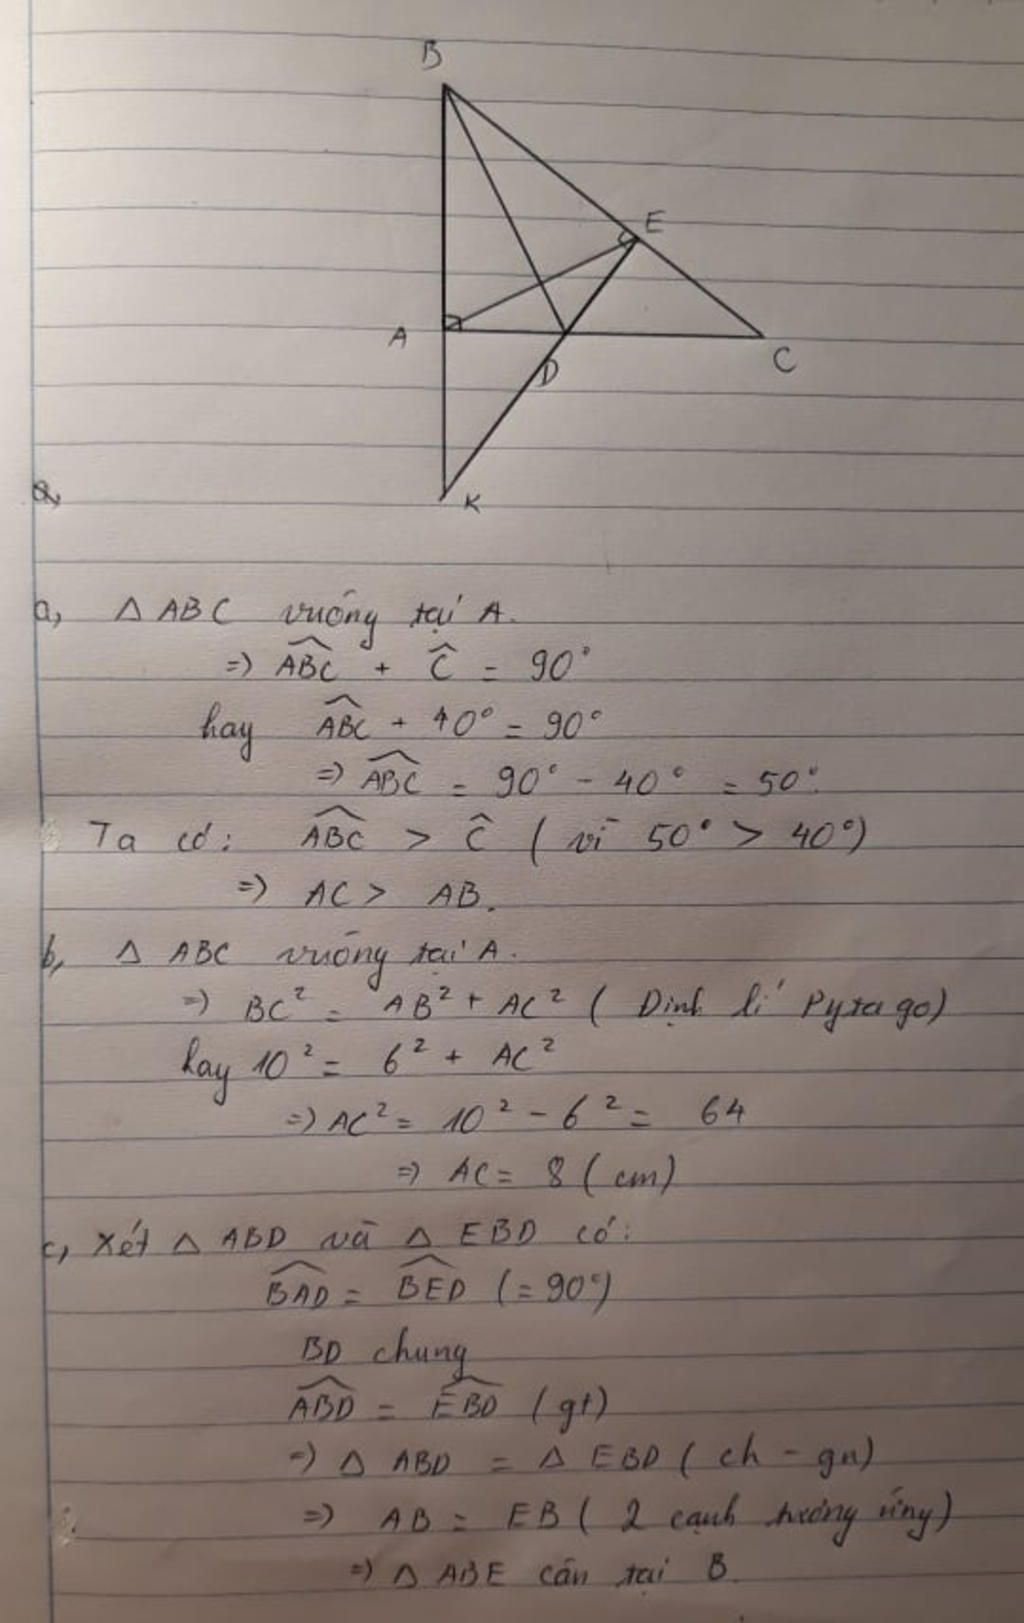 B
E
A
D
C
K
a, △ ABC vuông tại A.
=> \widehat{ABC} + \widehat{C} = 90°
hay \widehat{ABC} + 40° = 90°
=> \widehat{ABC} = 90° - 40° = 50°.
Ta có: \widehat{ABC} > \widehat{C} ( vì 50° > 40°)
=> AC > AB.
b, △ ABC vuông tại A.
=> BC² = AB² + AC² ( Định lí Pytago)
hay 10² = 6² + AC²
=> AC² = 10² - 6² = 64
=> AC = 8 ( cm)
c, Xét △ ABD và △ EBD có:
\widehat{BAD} = \widehat{BED} (= 90°)
BD chung
\widehat{ABD} = \widehat{EBD} ( gt)
=> △ ABD = △ EBD ( ch - gn)
=> AB = EB ( 2 cạnh tương ứng)
=> △ ABE cân tại B.